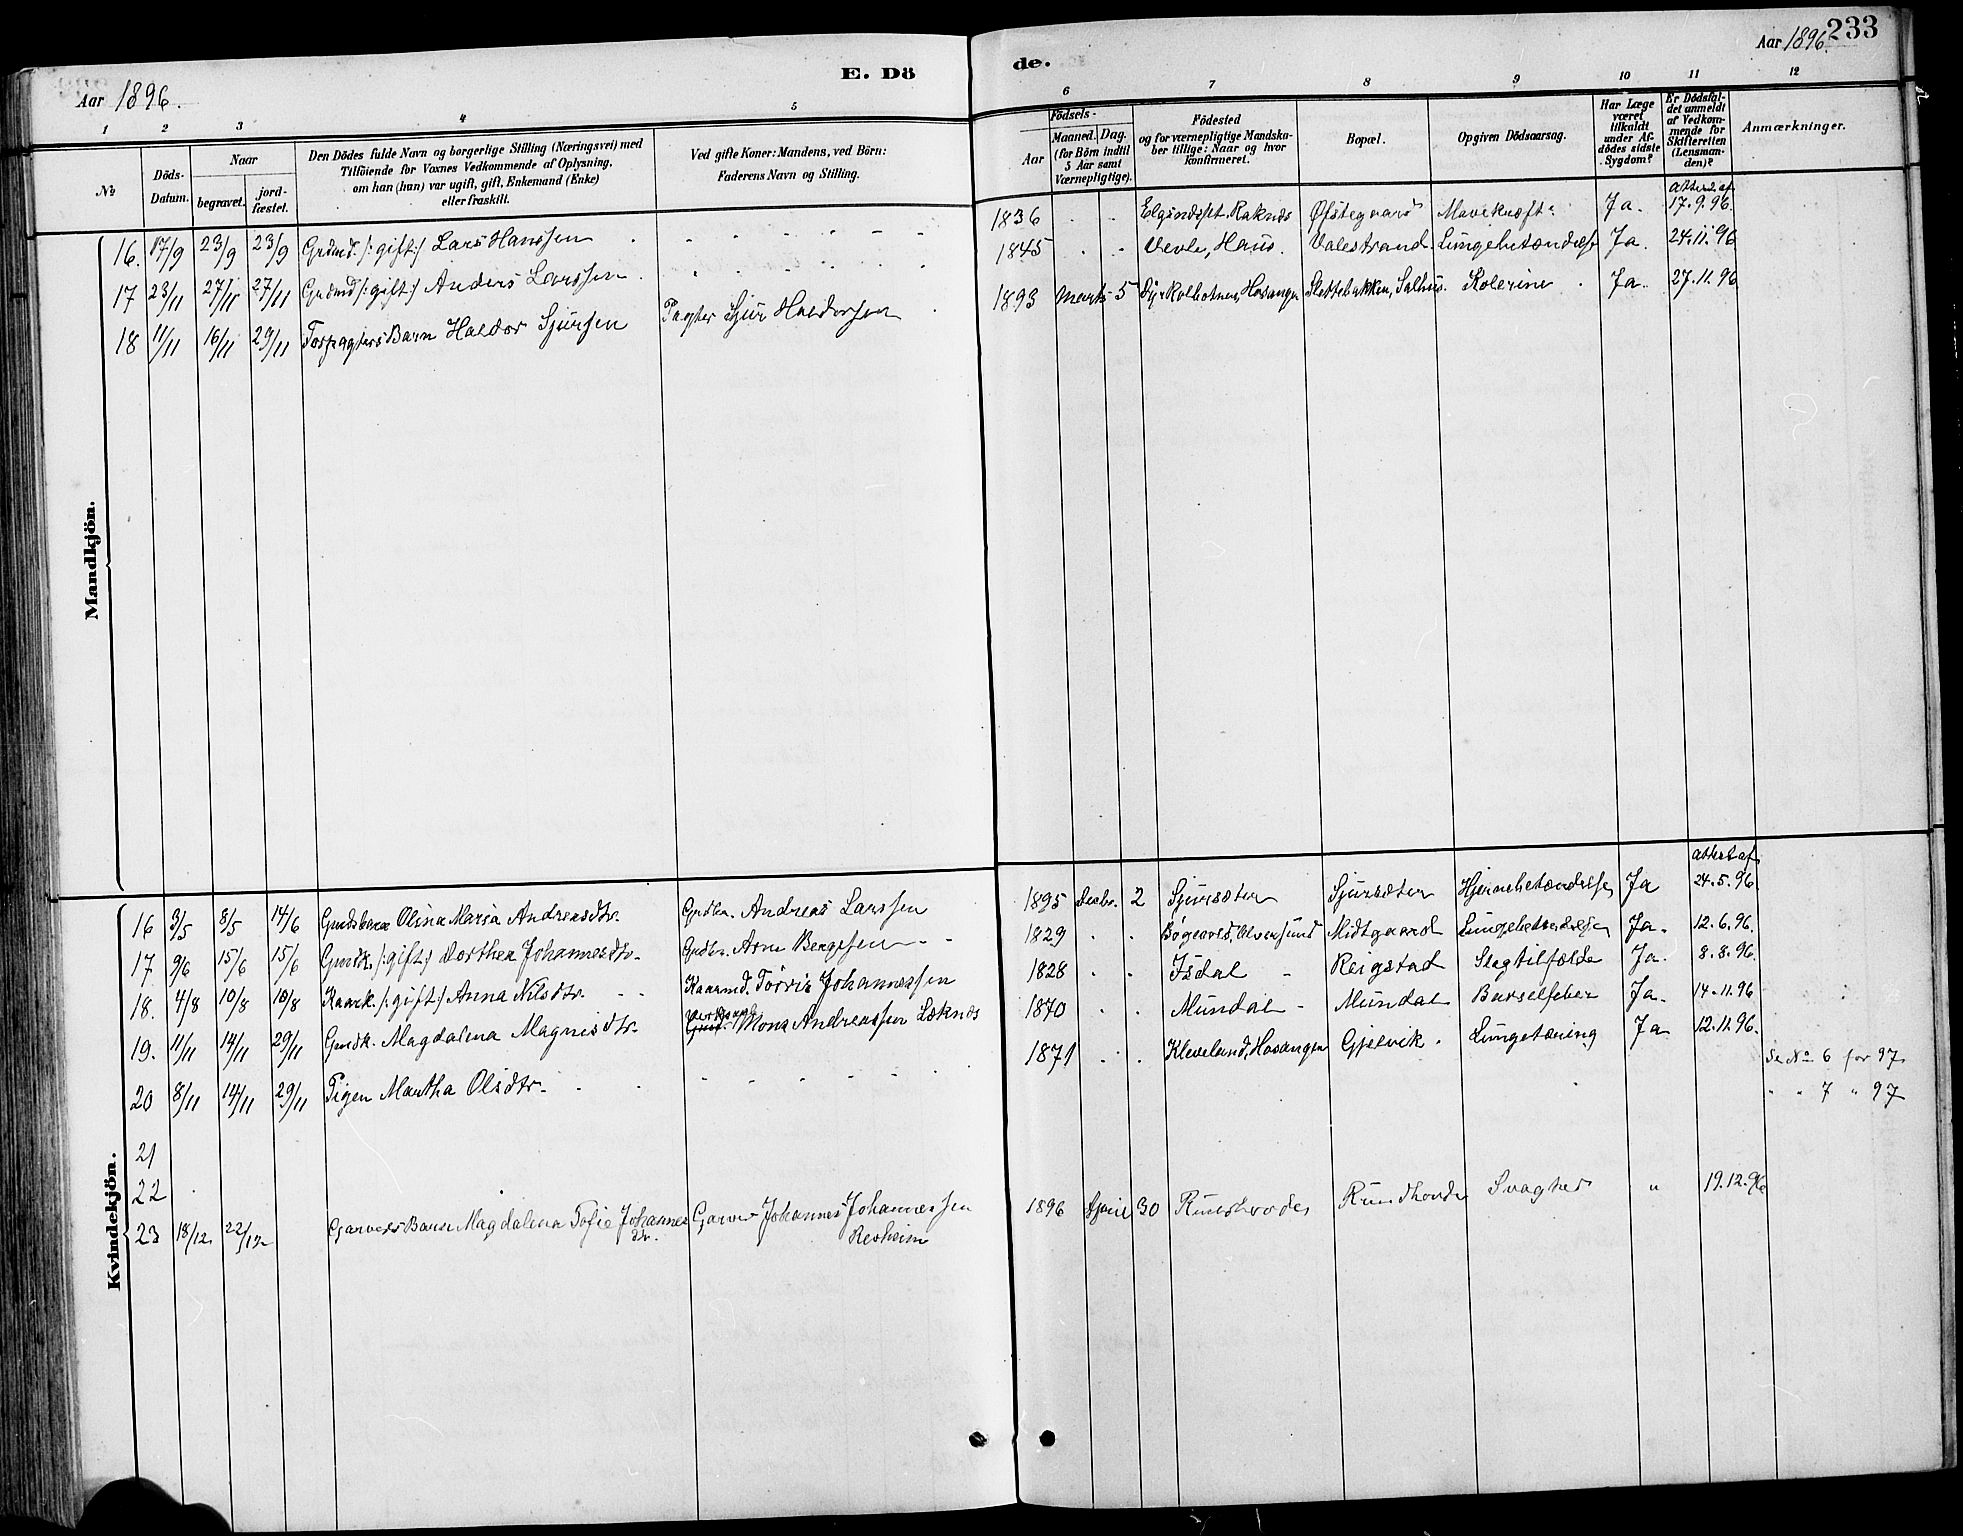 Aar 1896.
E. Dö
de.
Aar 1896.
233
1 2 3 4 5
6 7 8 9 10 11 12
№
Döds-
Datum.
Naar
begravet.
jord-
fæstet.
Den Dödes fulde Navn og borgerlige Stilling (Næringsvei) med
Tilföiende for Voxnes Vedkommende af Oplysning,
om han (hun) var ugift, gift, Enkemand (Enke)
eller fraskilt.
Ved gifte Koner: Mandens, ved Börn:
Faderens Navn og Stilling.
Födsels-
Aar
Maaned. Dag.
(for Börn indtil
5 Aar samt
Værnepligtige).
Födested
og for værnepligtige Mandska-
ber tillige: Naar og hvor
konfirmeret.
Bopæl.
Opgiven Dödsaarsag.
Har Læge
været
tilkaldt
under Af-
dödes sidste
Sygdom?
Er Dödsfal-
det anmeldt
af Vedkom-
mende for
Skifteretten
(Lensman-
den)?
Anmærkninger.
Mandkjön.
16. 17/9 23/9 23/9 Grdmd. /:gift:/ Lars Hanssen 1836 Raknes Øfstegaard Mavekræft Ja. 17.9.96.
17 23/11 27/11 27/11 Grdmd /:gift:/ Anders Larssen 1845 Vevle, Haus. Valestrand Lungebetændelse Ja. 24.11.96
18 11/11 16/11 29/11 Forpagters Barn Haldor Sjursen Pagter Sjur Haldorsen 1893 Marts 5 Hosanger Slettebakken, Salhus. Kolerine Ja. 27.11.96
Kvindekjön.
16 3/5 8/5 14/6 Olina Maria Andreasdtr. Grdbr. Andreas Larssen 1895 Decbr. 2 Sjursæter Sjursæter Hjernebetændelse Ja 24.5.96.
17. 9/6 15/6 15/6 Grmdk. /:gift:/ Dorthea Johannesdtr. Grdbr. Arne Bergesen 1829 Alversund Midtgaard Lungebetændelse Ja. 12.6.96.
18. 4/8 10/8 10/8 Kaark. /:gift:/ Anna Nilsdtr. Kaarmd. Johannessen 1828 Isdal Reigstad Slagtilfælde Ja. 8.8.96.
19. 11/11 14/11 29/11 Grmdk. Magdalena Magnisdtr. Mons Andreassen Læknes 1870 Mundal Mundal Barselfeber Ja. 14.11.96
20 8/11 14/11 29/11 Pigen Martha Olsdtr. 1871 Kleveland, Hosanger Gjelvik. Lungetæring Ja 12.11.96.
21 Se No 6 for 97
22 " " 7 " 97
23 18/12 22/12 Garvers Barn Magdalena Tofie Johannes Garver Johannes Johannessen 1896 April 30 Rundhovde Svaghed " 19.12.96
dtr.
Resheim